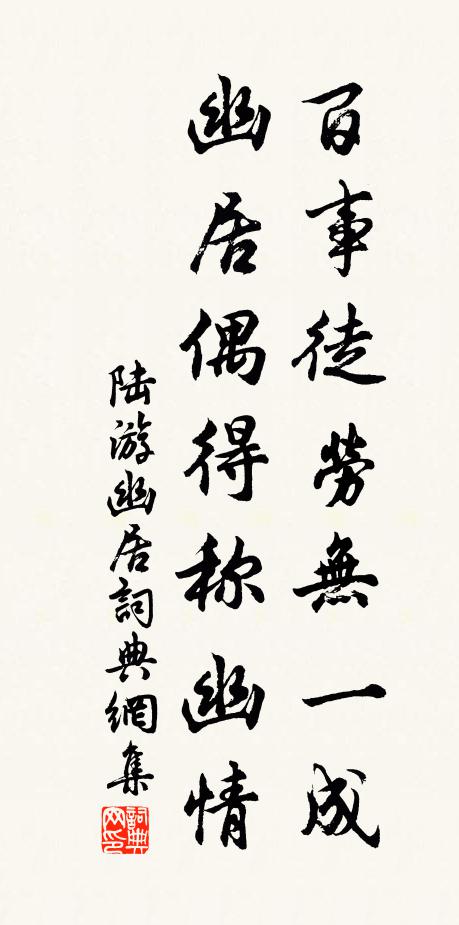 百事徒勞無一成
幽居偶得称幽情
陆游幽居詞典網集
詞典网印